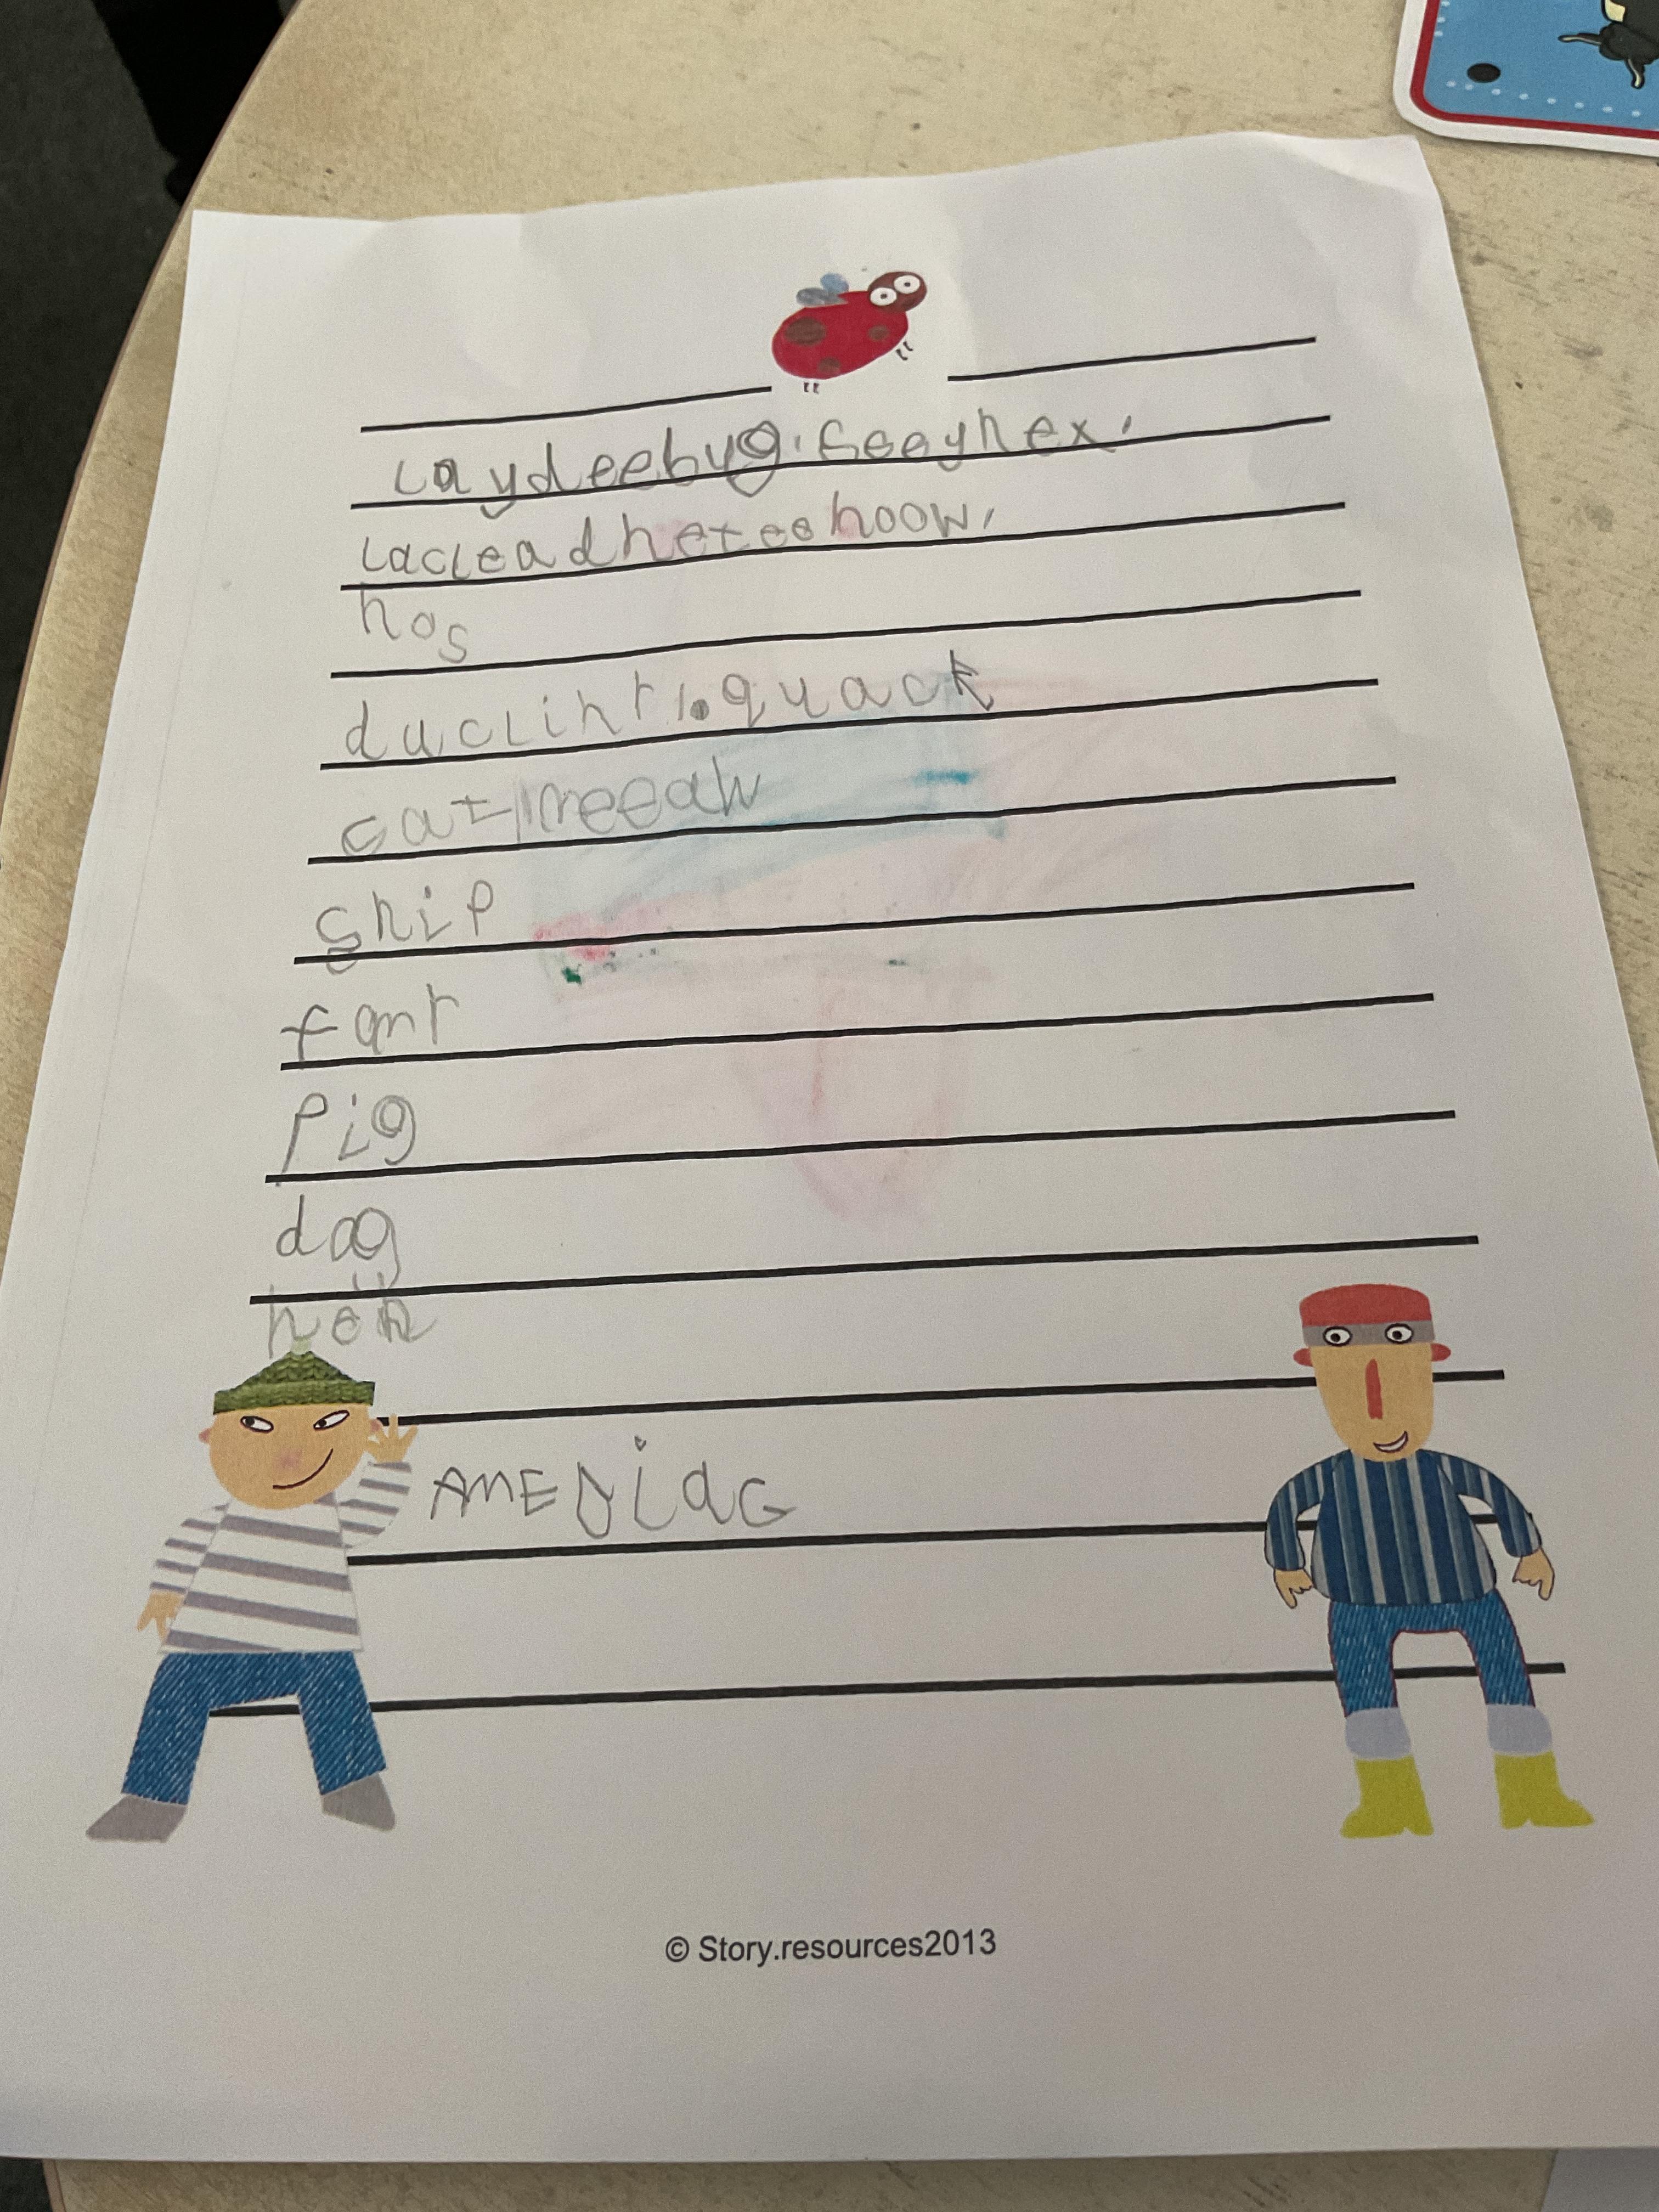 Laydeebug. Seeynex.
Lacleadheteehoow,
hos
duclint1.quack
cat/meeaw
ship
farmr
pig
dog
hen
© Story.resources2013